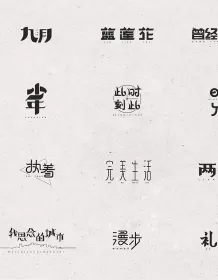 九月
蓝莲花
曾经
少年
此时
此刻
执着
完美生活
两
我思念的城市
漫步
礼